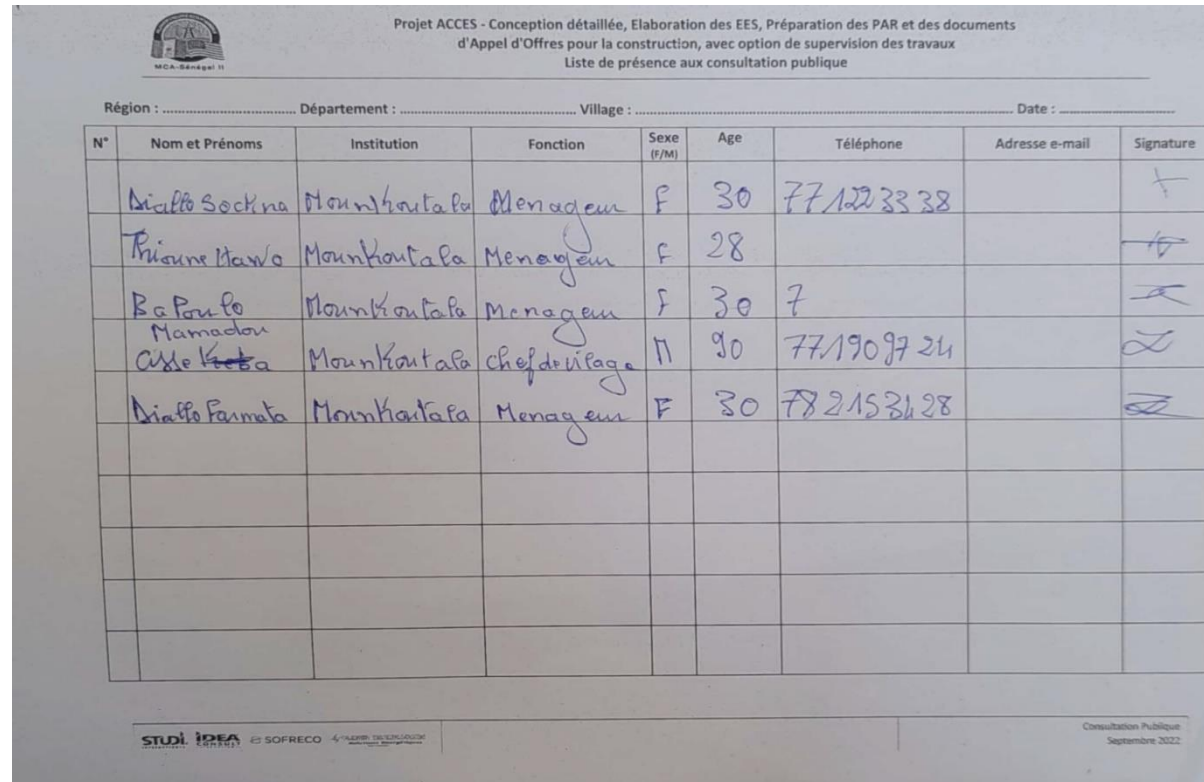 MCA-Sénégal II
Projet ACCES - Conception détaillée, Elaboration des EES, Préparation des PAR et des documents
d'Appel d'Offres pour la construction, avec option de supervision des travaux
Liste de présence aux consultation publique
Région : Département : Village : Date :
N° Nom et Prénoms Institution Fonction Sexe (F/M) Age Téléphone Adresse e-mail Signature
Diallo Sockna Mounkoutala Menageur F 30 771223338
Thioune Hawa Mounkoutala Menageur F 28
Ba Poulo Mounkoutala Menageur F 30 7
Mamadou
Cisse Mounkoutala Chef de vilage M 90 771909724
Diallo Farmata Mounkoutala Menageur F 30 782153428
STUDI IDEA CONSULT SOFRECO
Consultation Publique
Septembre 2022